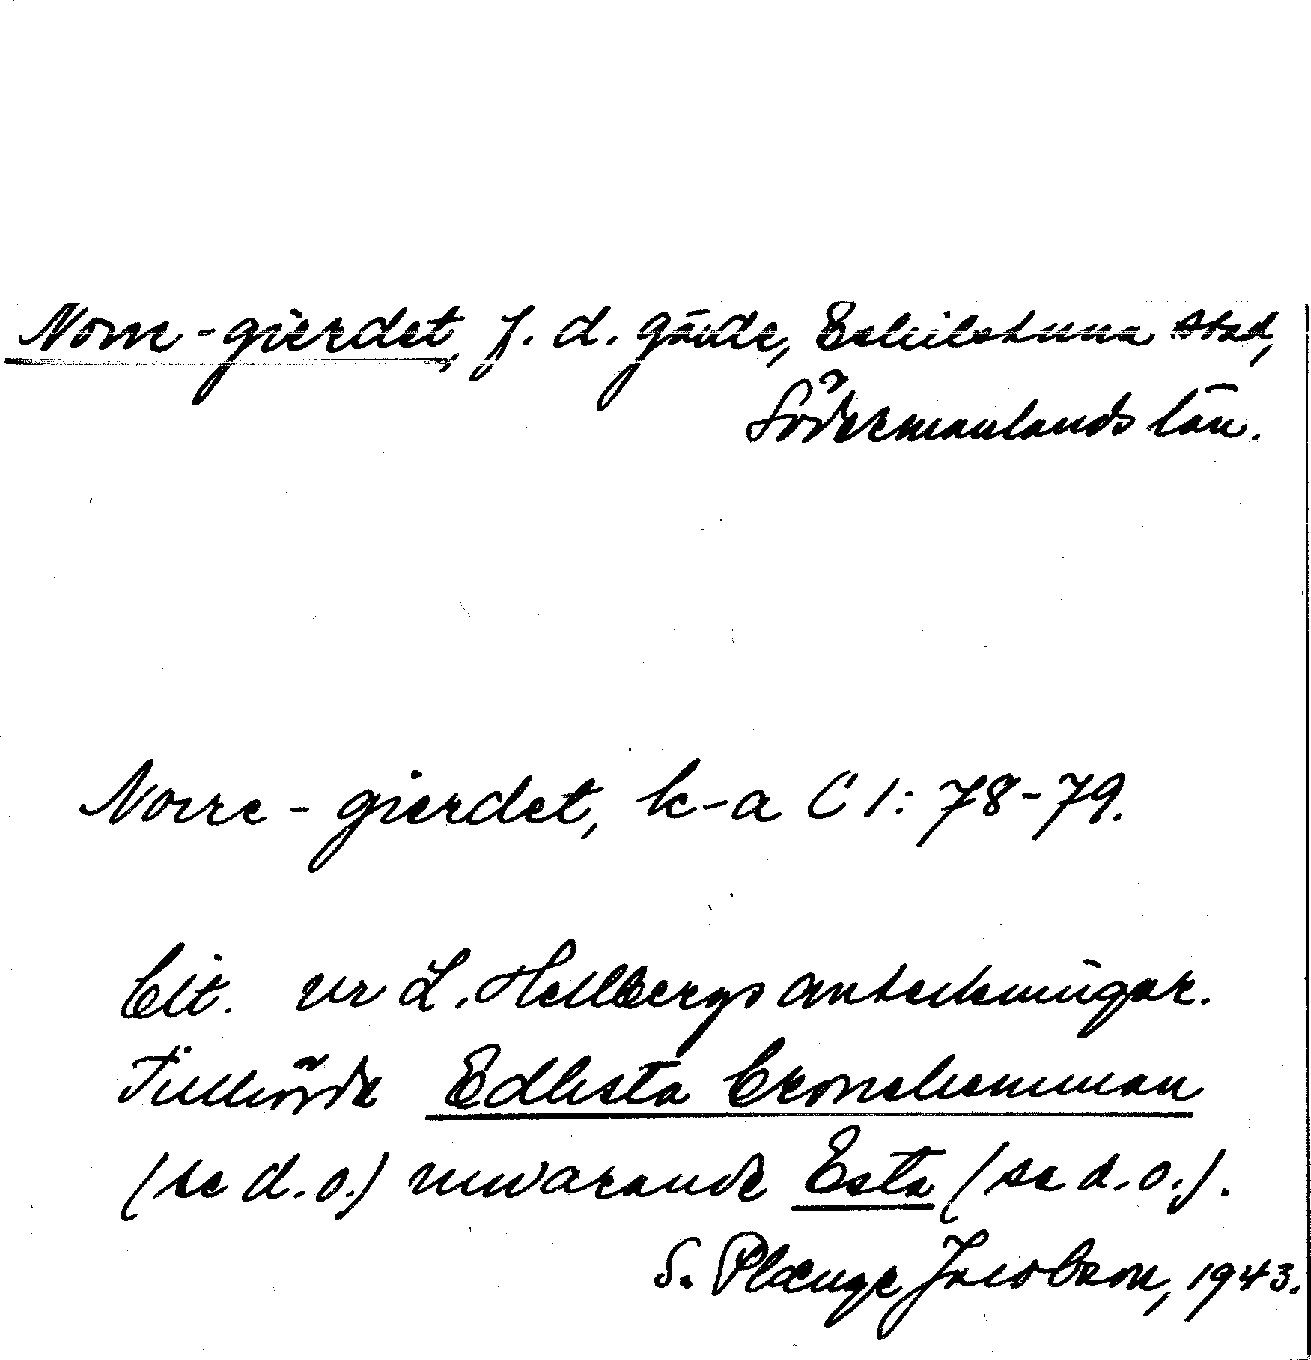 Norre-gierdet, f. d. gärde, Eskilstuna stad,
Södermanlands län.
Norre-gierdet, k-a C 1: 78-79.
Cit. ur L. Hellbergs anteckningar.
Tillhörde Edhesta Cronehemman
(se d.o.) nuvarande Esta (se d.o.).
S. Plænge Jacobson, 1943.